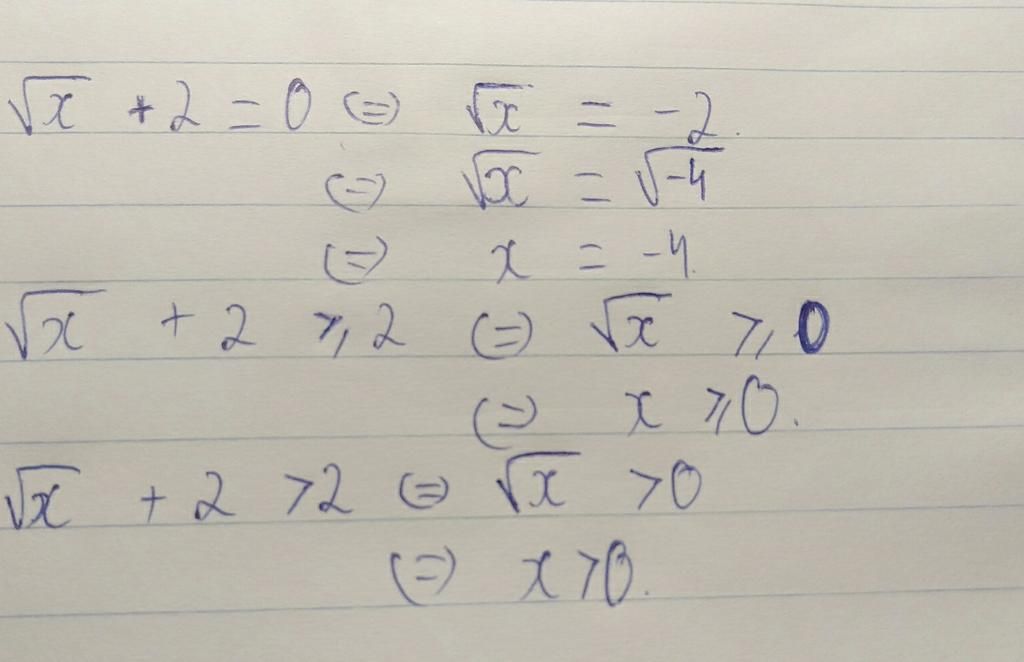 √x + 2 = 0 (=) √x = -2.
(=) √x = √-4
(=) x = -4.
√x + 2 ⩾ 2 (=) √x ⩾ 0
(=) x ⩾ 0.
√x + 2 > 2 (=) √x > 0
(=) x > 0.